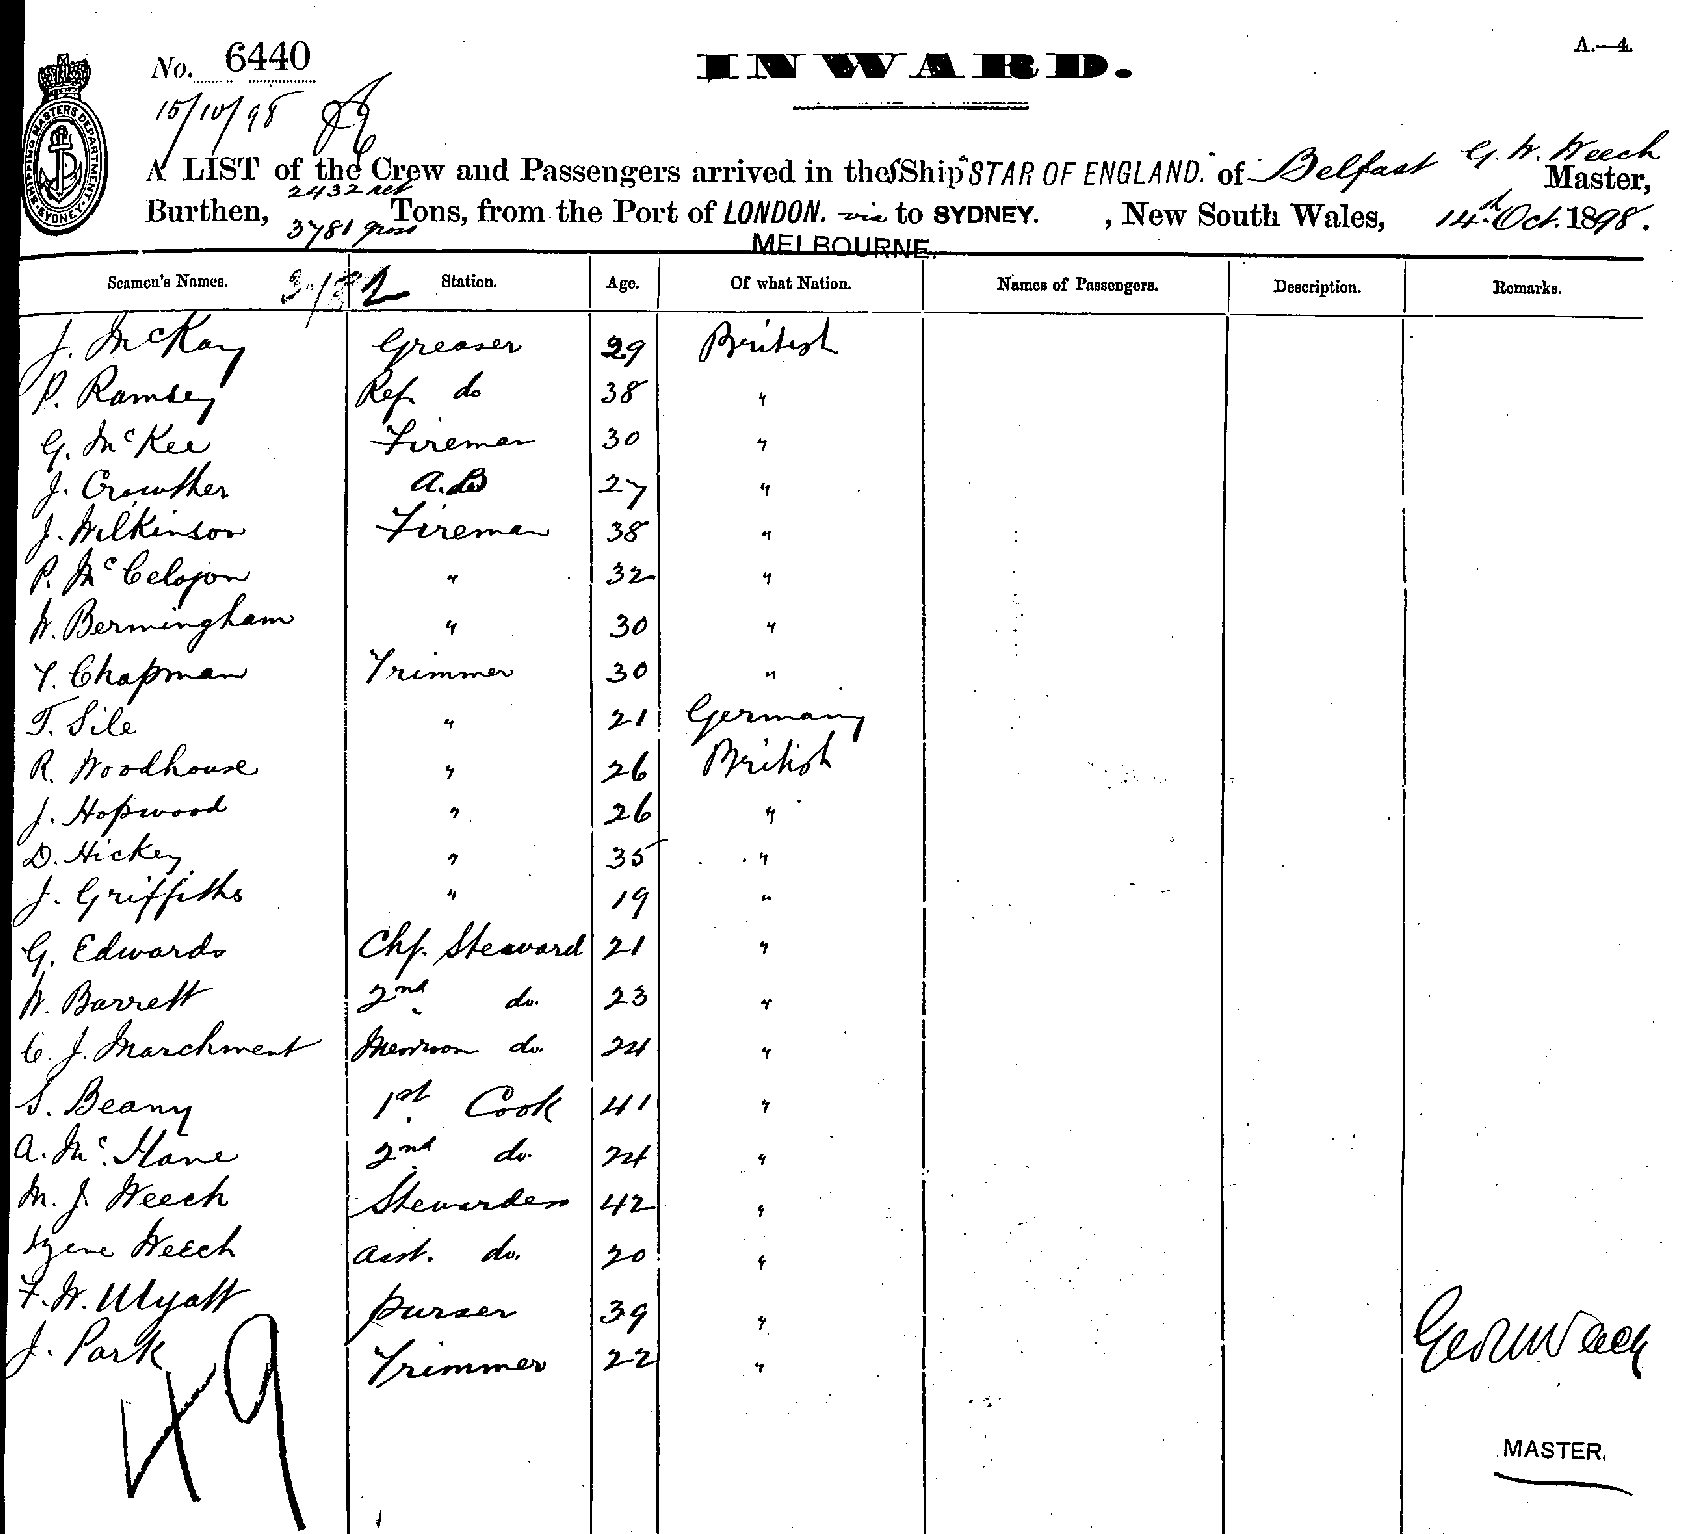 A.—4.
No. 6440
INWARD.
15/10/98
SHIPPING MASTERS DEPARTMENT SYDNEY
A LIST of the Crew and Passengers arrived in the SShip "STAR OF ENGLAND." of Belfast G. W. Weech Master,
2432 net
Burthen, Tons, from the Port of LONDON. via to SYDNEY. , New South Wales, 14th Oct. 1898.
3781 gross
MELBOURNE.
Seamen's Names. Station. Age. Of what Nation. Names of Passengers. Description. Remarks.
J. McKay Greaser 29 British
P. Ramsey Ref. do 38 "
G. McKee Fireman 30 "
J. Crowther A.B 27 "
J. Wilkinson Fireman 38 "
P. " 32 "
W. Bermingham " 30 "
T. Chapman Trimmer 30 "
F. Sile " 21 Germany
R. Woodhouse " 26 British
J. Hopwood " 26 "
D. Hickey " 35 "
J. Griffiths " 19 "
G. Edwards Chf. Steward 21 "
W. Barrett 2nd do. 23 "
C. J. Marchment do. 24 "
S. Beany 1st Cook 41 "
A. Mc.Kane 2nd do. 24 "
M. J. Weech Stewardess 42 "
Weech Asst. do. 20 "
F. W. Wyatt Purser 39 "
J. Park Trimmer 22 "
Geo W Weech
49
MASTER.